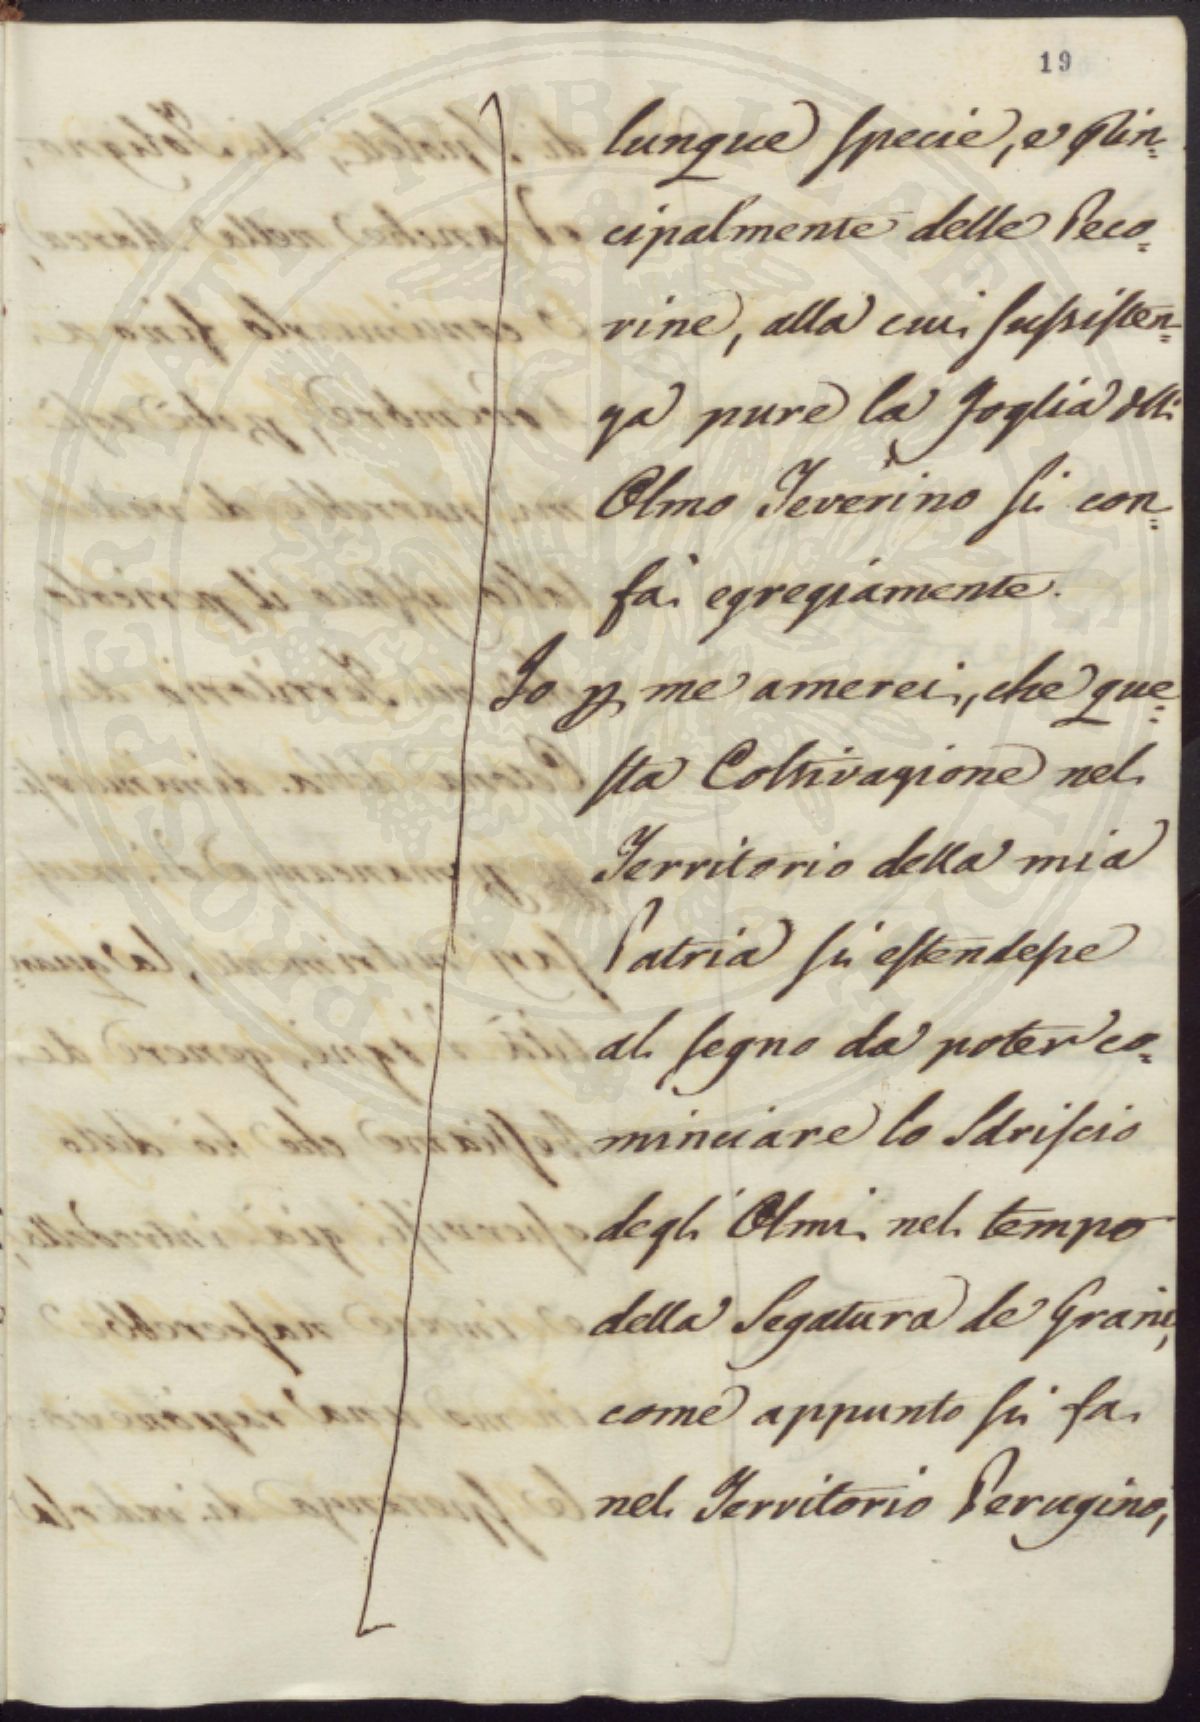 19
lunque specie, e Prin=
cipalmente delle Peco=
rine, alla cui sussisten=
za pure la foglia dell'
Olmo Teverino si con=
fà egregiamente.
Io p me amerei, che que=
sta Coltivazione nel
Territorio della mia
Patria si estendesse
al segno da poter co=
minciare lo Sdriscio
degli Olmi nel tempo
della Segatura de Grani,
come appunto si fa
nel Territorio Perugino,